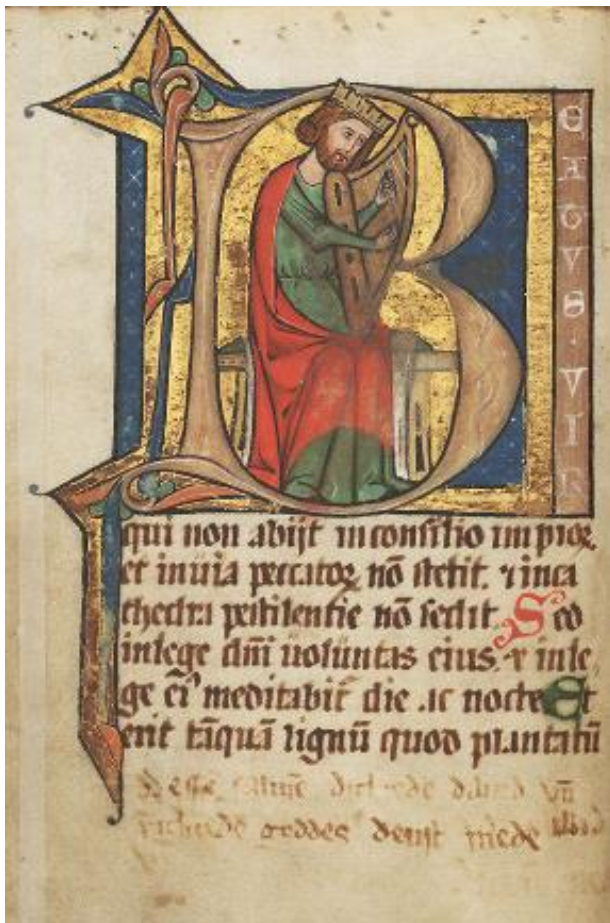 B
EATVS · VIR
qui non abijt in consilio impioꝝ
et in uia peccatoꝝ nō stetit. ⁊ in ca
thedra pestilentie nō sedit. Sed
in lege dn̄i uoluntas eius. ⁊ in le
ge ei᷒ meditabit᷑ die ac nocte Et
erit tāquā lignū quod plantatū
dauid
goddes denst mede